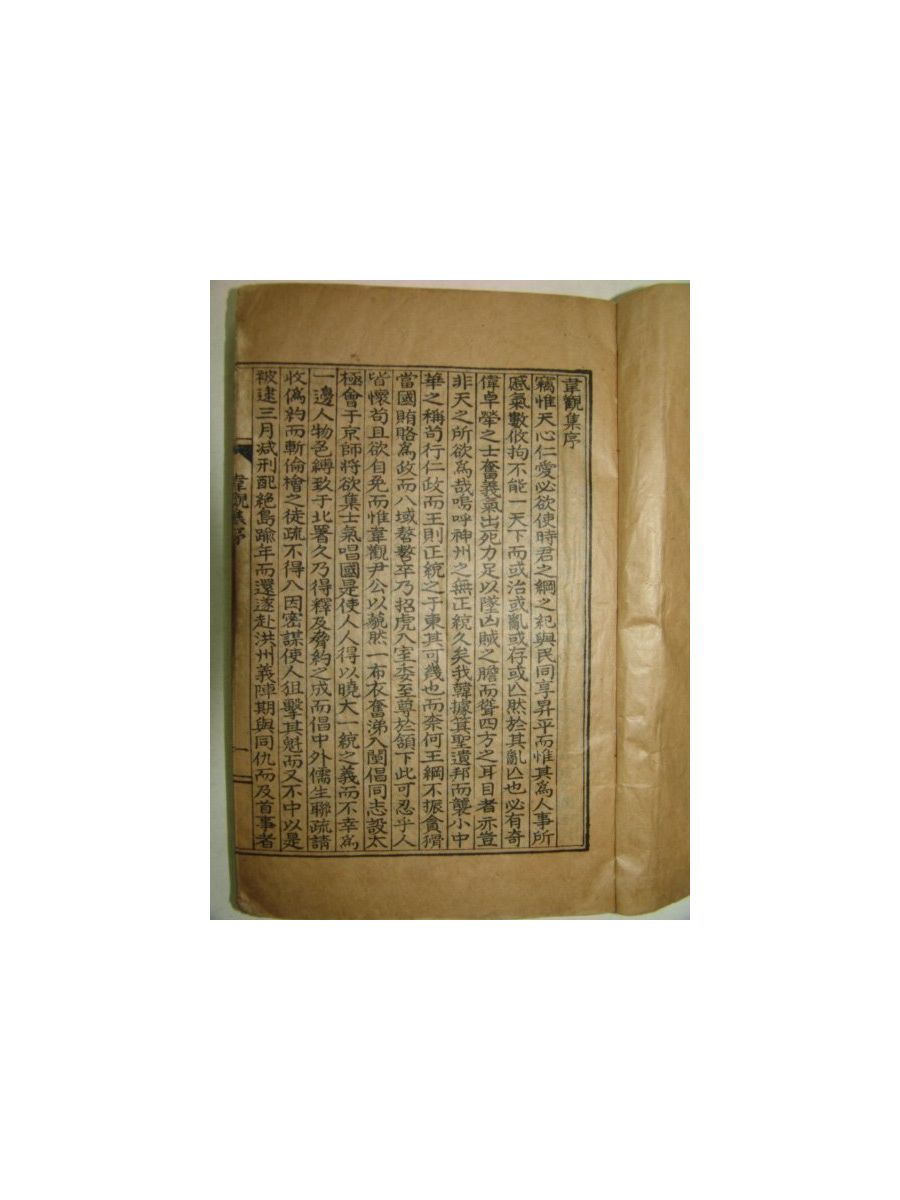 韋觀集序
竊惟天心仁愛必欲使時君之綱之紀與民同享昇平而惟其爲人事所
感氣數攸拘不能一天下而或治或亂或存或亾然於其亂亾也必有奇
偉卓犖之士奮義氣出死力足以墜凶賊之膽而聳四方之耳目者亦豈
非天之所欲爲哉嗚呼神州之無正統久矣我韓據箕聖遺邦而襲小中
華之稱苟行仁政而王則正統之于東其可幾也而柰何王綱不振貪猾
當國賄賂爲政而八域嗸嗸卒乃招虎入室委至尊於頷下此可忍乎人
皆懷苟且欲自免而惟韋觀尹公以藐然一布衣奮涕入閩倡同志設太
極會于京師將欲集士氣唱國是使人人得以曉大一統之義而不幸爲
一邊人物色縛致于北署久乃得釋及脅約之成而倡中外儒生聯疏請
收僞約而斬倫檜之徒疏不得入因密謀使人狙擊其魁而又不中以是
被逮三月減刑配絶島踰年而還遂赴洪州義陣期與同仇而及首事者
韋觀集序
一